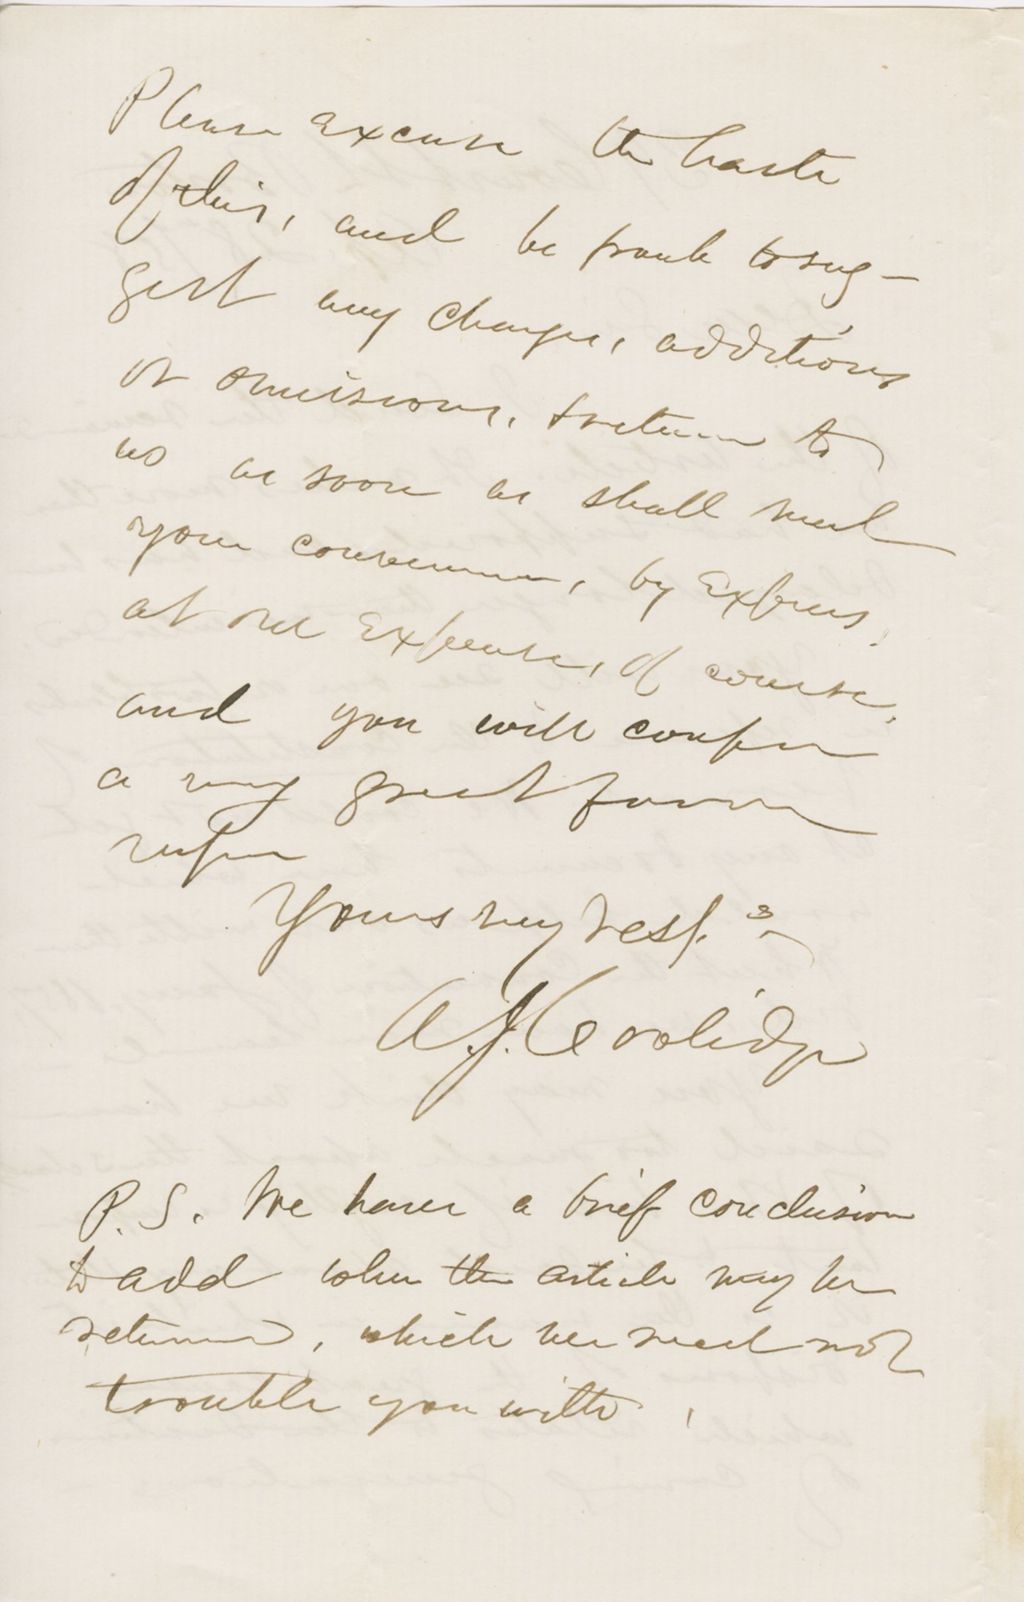 Please excuse the haste
of this, and be frank to sug-
gest any changes, additions
or omissions, & return to
us as soon as shall meet
your convenience, by Express,
at our Expense, of course,
and you will confer
a very great favor
upon
Yours very resp.
A. J. Coolidge
P.S. We have a brief conclusion
to add when the article may be
returned, which we need not
trouble you with.